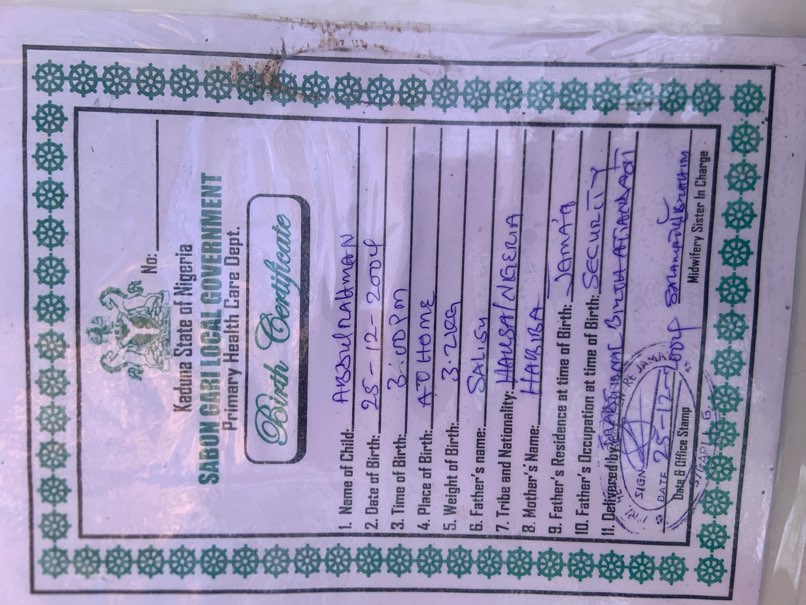 No:
Kaduna State of Nigeria
SABON GARI LOCAL GOVERNMENT
Primary Health Care Dept.
Birth Certificate
1. Name of Child: ABDULRAHMAN
2. Date of Birth: 25-12-2004
3. Time of Birth: 3:00PM
4. Place of Birth: AT HOME
5. Weight of Birth: 3.2kg
6. Father's name: SALISU
7. Tribe and Nationality: HAUSA/NIGERIA
8. Mother's Name: HABIBA
9. Father's Residence at time of Birth: JAMA'A
10. Father's Occupation at time of Birth: SECURITY
11. Delivered by: Birth Attendant
SIGN
DATE 25-12-2004
Date & Office Stamp
IBRAHIM
Midwifery Sister In Charge